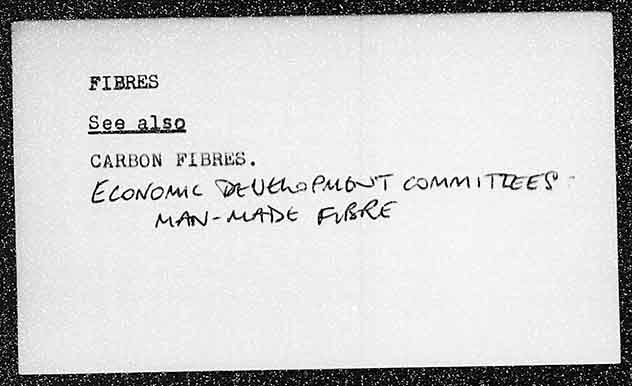 FIBRES
See also
CARBON FIBRES.
ECONOMIC DEVELOPMENT COMMITTEES -
MAN-MADE FIBRE